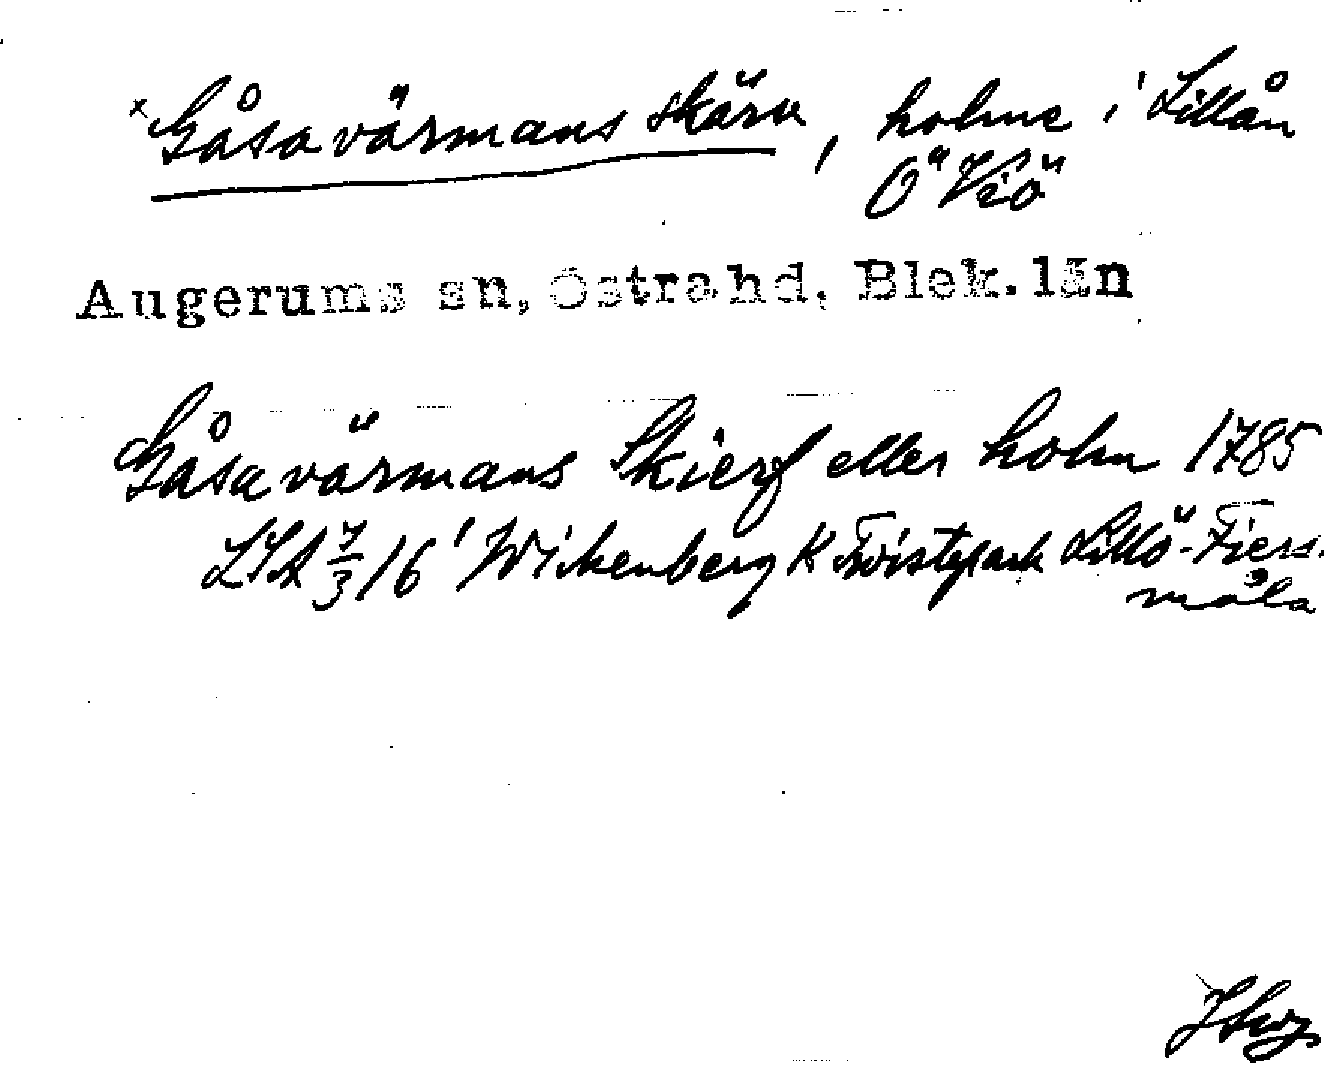 x Gåsavärmans skärv, holme i Lillån
Ö Viö
Augerums sn, Östra hd, Blek. län
Gåsavärmans Skierf eller holm 1785
LSA 7/3 16 Wikenberg K Tvistepark Lillö-Fiers-
måla